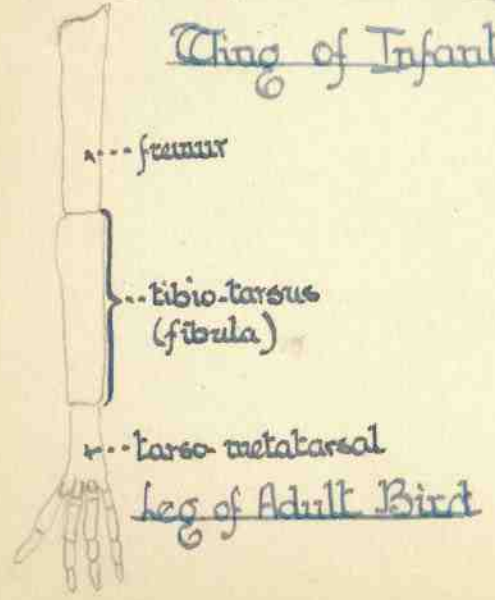 Wing of Infant
femur
tibio-tarsus
(fibula)
tarso-metatarsal
Leg of Adult Bird